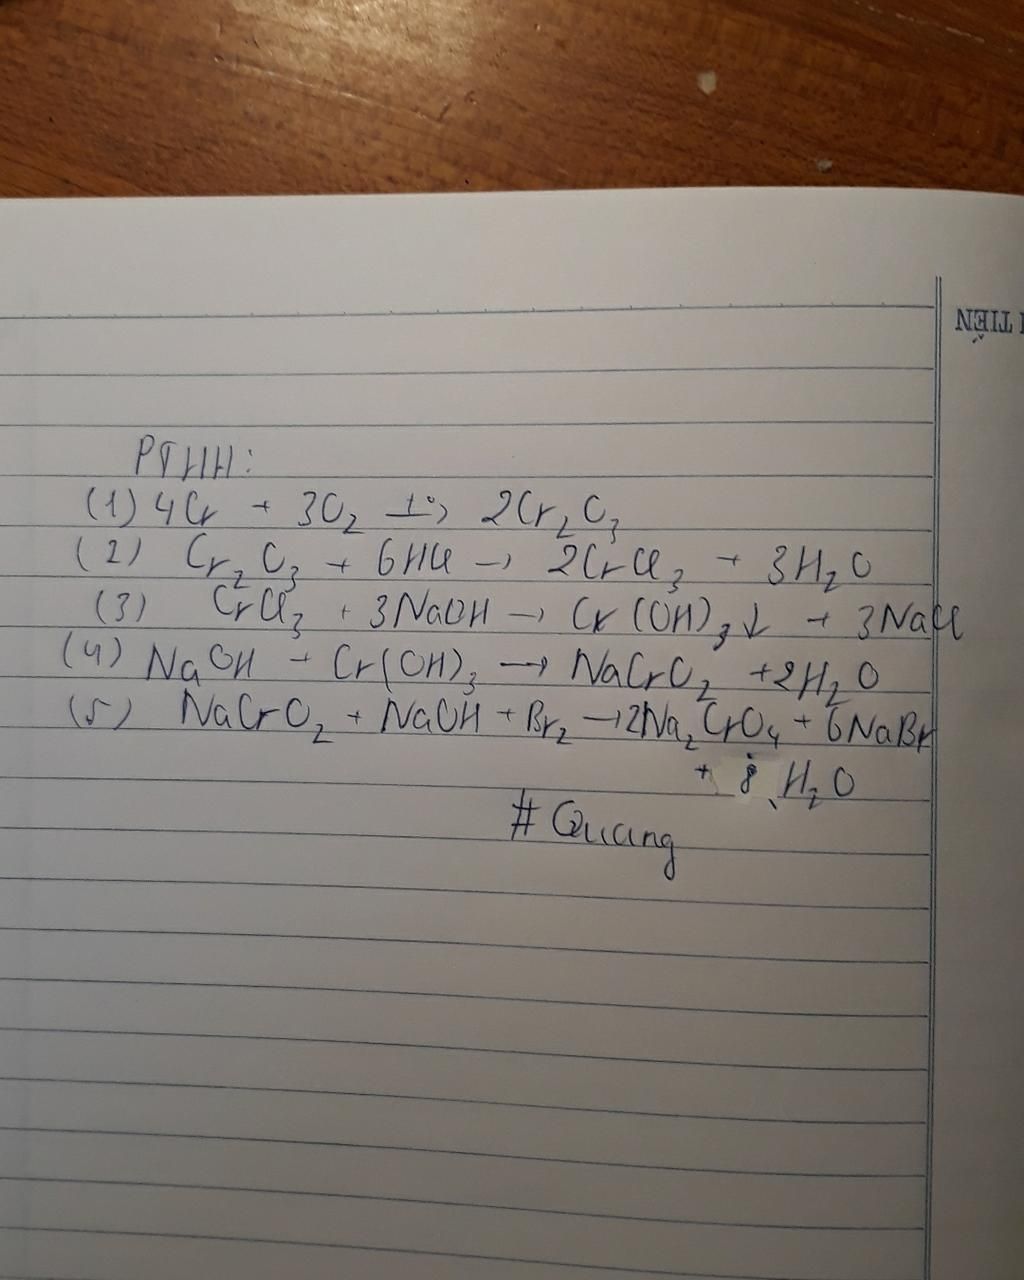 TIÊN
PTHH:
(1) 4Cr + 3O₂ t°→ 2Cr₂O₃
(2) Cr₂O₃ + 6HCl → 2CrCl₃ + 3H₂O
(3) CrCl₃ + 3NaOH → Cr(OH)₃↓ + 3NaCl
(4) NaOH + Cr(OH)₃ → NaCrO₂ + 2H₂O
(5) NaCrO₂ + NaOH + Br₂ → 2Na₂CrO₄ + 6NaBr
+ 8 H₂O
# Quang